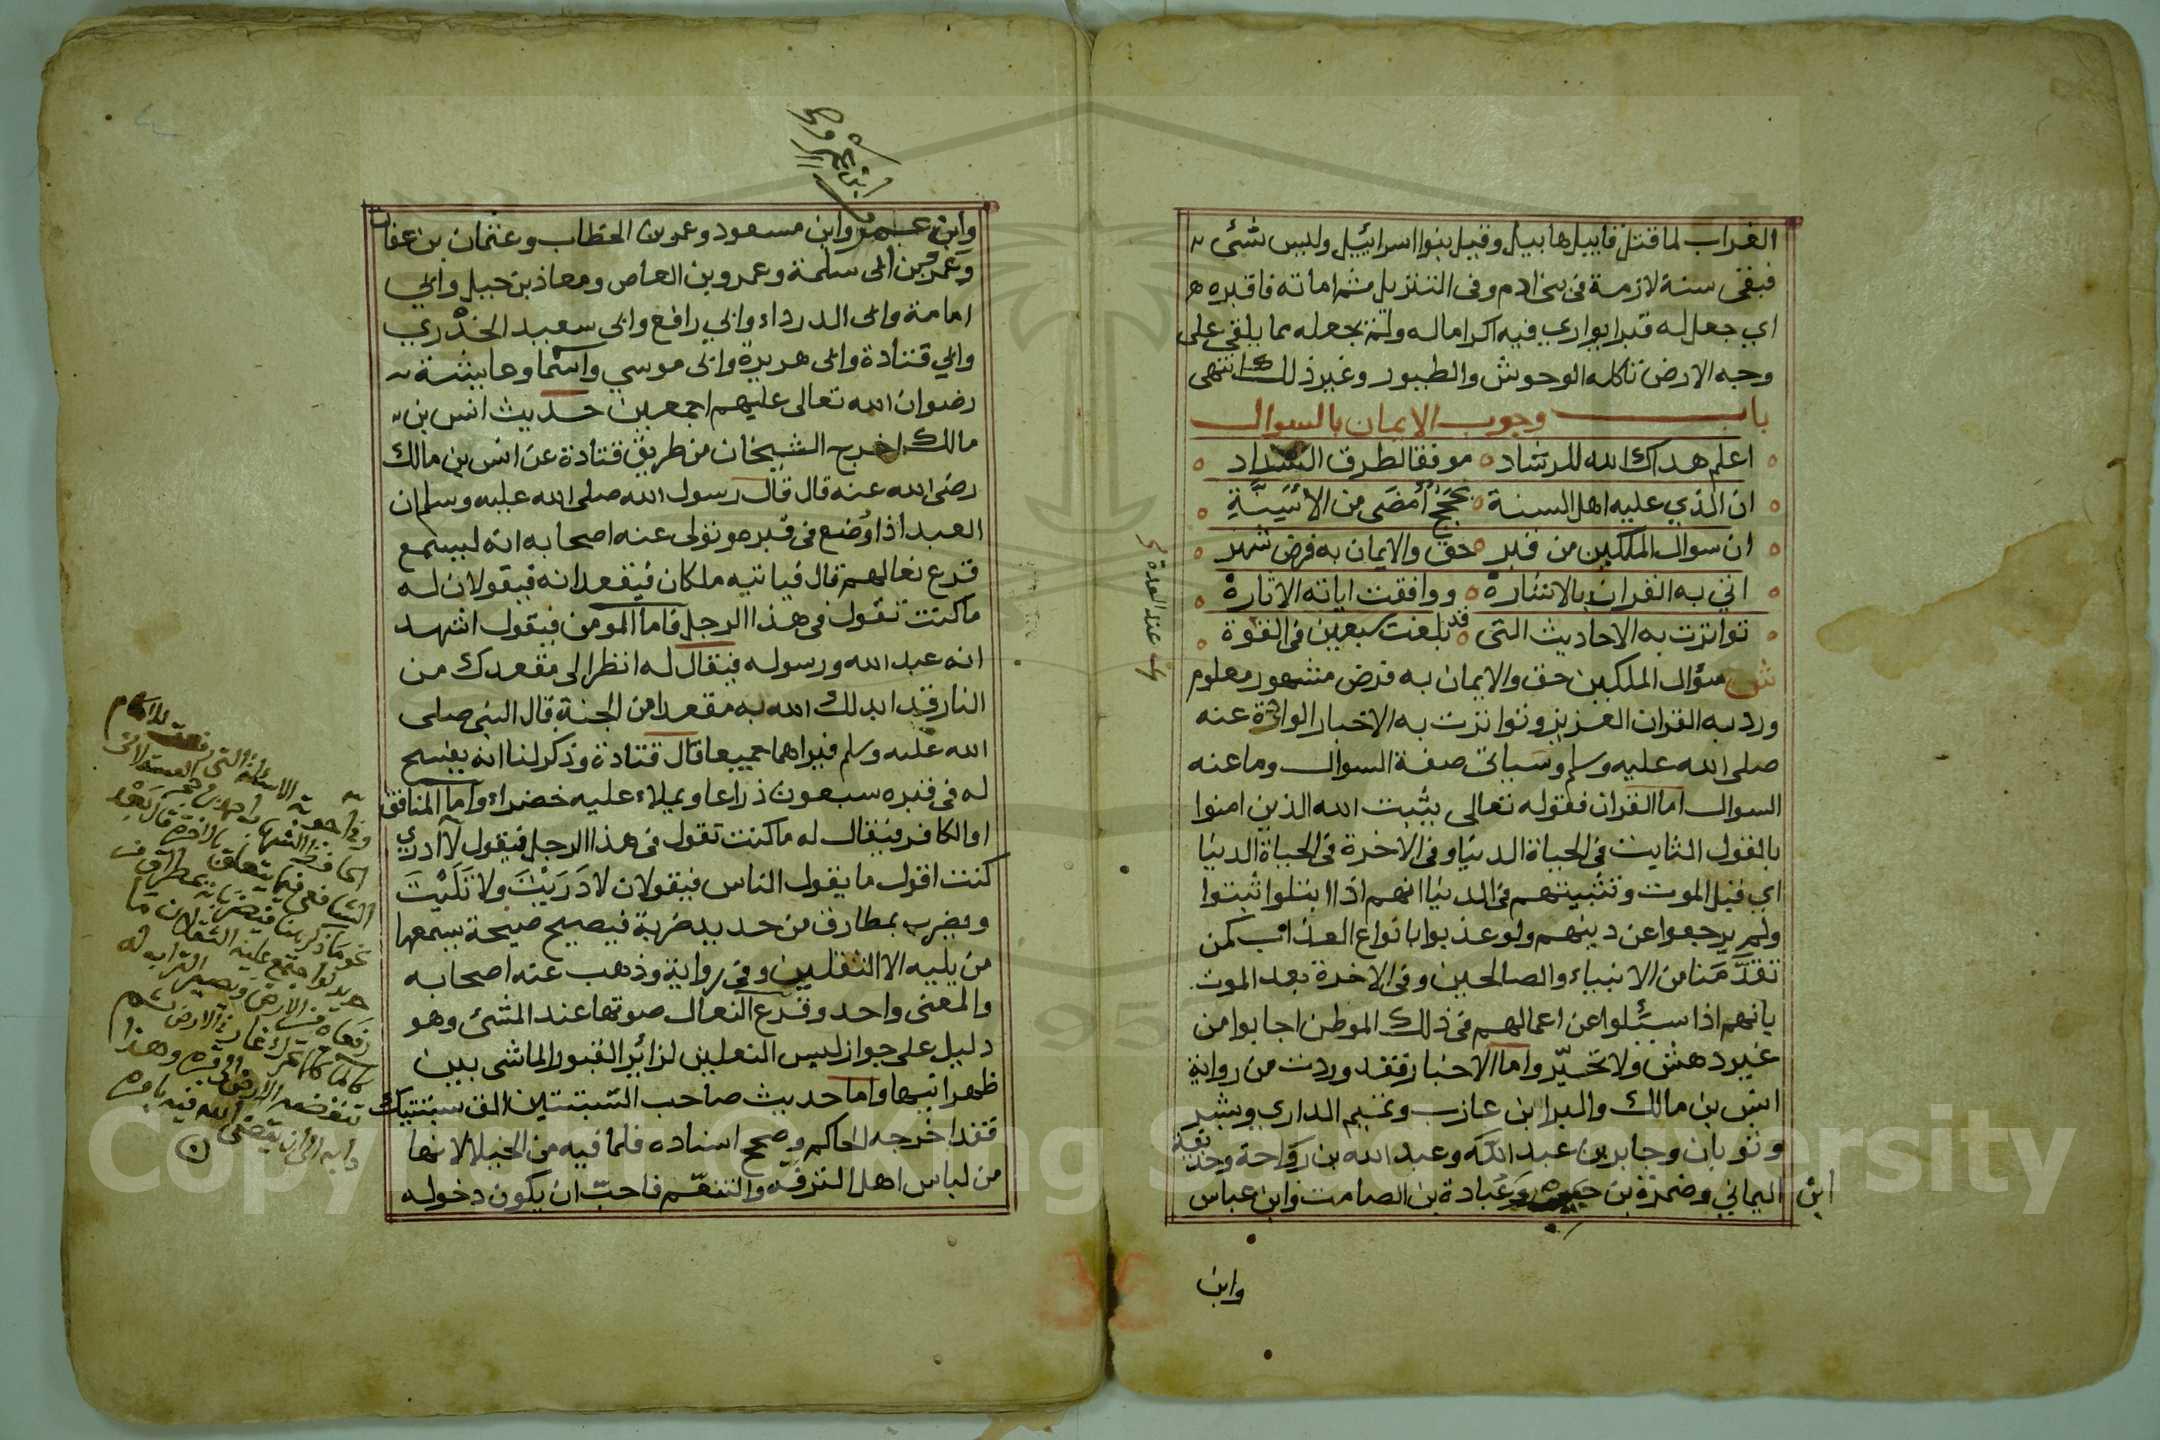 الغراب لما قتل قابيل هابيل وقيل بنوا اسرائيل وليس شئ
فبقى سنة لازمة فى بنى ادم وفى التنزيل ثم اماته فاقبره
اي جعل له قبرا يواري فيه اكراما له ولم يجعله مما يلقى على
وجه الارض تاكله الوحوش والطيور وغير ذلك انتهى
باب وجوب الايمان بالسوال
اعلم هداك الله للرشاد موفقا لطرق السداد
ان الذي عليه اهل السنة بحجج أمضى من الأسنة
ان سوال الملكين من قبر حق والايمان به فرض شهر
اتي به القران بالاشارة ووافقت اياته الاثارة
تواترت به الاحاديث التى قد بلغت سبعين فى القوة
عند العدة
شرح سؤال الملكين حق والايمان به فرض مشهور معلوم
ورد به القران العزيز وتواترت به الاخبار الواردة عنه
صلى الله عليه وسلم وسياتى صفة السوال وما عنه
السوال اما القران فقوله تعالى يثبت الله الذين امنوا
بالقول الثابت فى الحياة الدنيا وفى الاخرة فى الحياة الدنيا
اي قبل الموت وتثبيتهم فى الدنيا انهم اذا ابتلوا ثبتوا
ولم يرجعوا عن دينهم ولو عذبوا بانواع العذاب كمن
تقدمنا من الانبياء والصالحين وفى الاخرة بعد الموت
بانهم اذا سئلوا عن اعمالهم فى ذلك الموطن اجابوا من
غير دهش ولا تحير واما الاخبار فقد وردت من رواية
انس بن مالك والبرا بن عازب وتميم الداري وبشير
وثوبان وجابر بن عبد الله وعبد الله بن رواحة وحذيفة
ابن اليماني وضمرة بن حبيب وعبادة بن الصامت وابن عباس
وابن
وابن عمر وابن مسعود وعمر بن الخطاب وعثمان بن عفان
وعمرو بن ابى سلمة وعمرو بن العاص ومعاذ بن جبل وابي
امامة وابى الدرداء وابي رافع وابى سعيد الخدري
وابي قتادة وابى هريرة وابى موسي واسما وعايشة
رضوان الله تعالى عليهم اجمعين حديث انس بن
مالك اخرج الشيخان من طريق قتادة عن انس بن مالك
رضى الله عنه قال قال رسول الله صلى الله عليه وسلم ان
العبد اذا وضع فى قبره وتولى عنه اصحابه انه ليسمع
قرع نعالهم قال فياتيه ملكان فيقعدانه فيقولان له
ما كنت تقول فى هذا الرجل فاما المومن فيقول اشهد
انه عبد الله ورسوله فيقال له انظر الى مقعدك من
النار قد ابدلك الله به مقعدا من الجنة قال النبى صلى
الله عليه وسلم فيراهما جميعا قال قتادة وذكر لنا انه يفسح
له فى قبره سبعون ذراعا ويملاء عليه خضراء واما المنافق
او الكافر فيقال له ما كنت تقول فى هذا الرجل فيقول لا ادري
كنت اقول ما يقول الناس فيقولان لا دريت ولا تليت
ويضرب بمطارق من حديد ضربة فيصيح صيحة يسمعها
من يليه الا الثقلين وفى رواية وذهب عنه اصحابه
والمعنى واحد وقرع النعال صوتها عند المشئ وهو
دليل على جواز لبس النعلين لزائر القبور الماشى بين
ظهرانيها واما حديث صاحب السبتتين الق سبتتيك
فقد اخرجه الحاكم وصحح اسناده فلما فيه من الخيلا لانها
من لباس اهل الترفه والتنعم فاحب ان يكون دخوله
Copyright © King Saud University